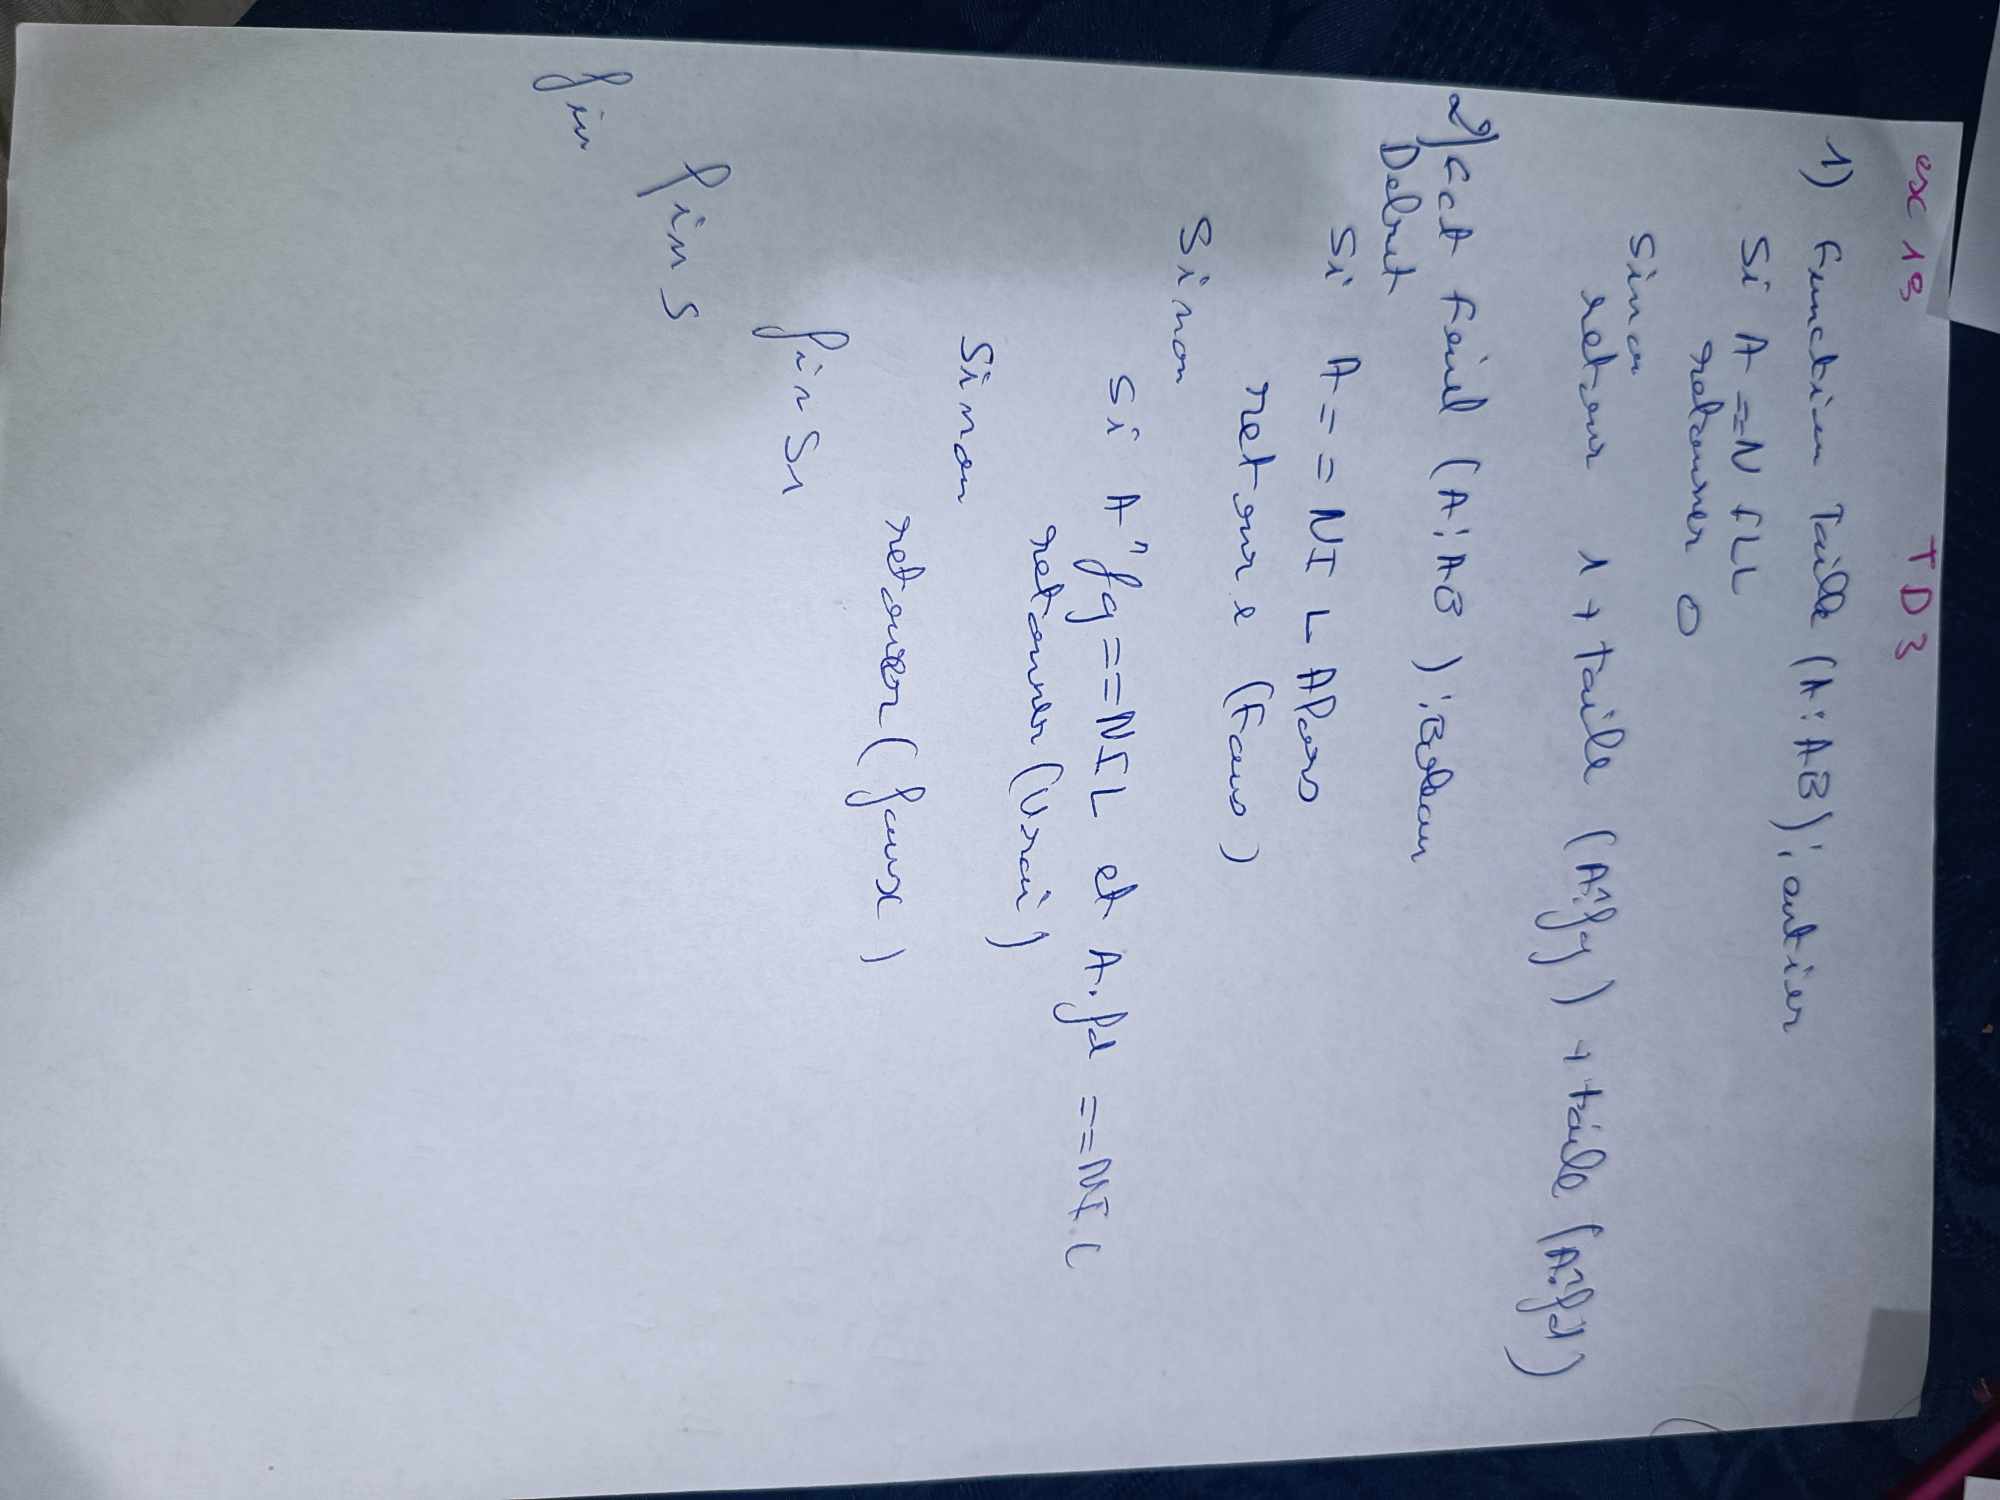 exc 19 TD3
1) Function Taille (A : AB) : entier
Si A == NILL
retourner 0
Sinon
retour 1 + taille (A^.fg) + taille (A^.fd)
2) Fct Feuil (A : AB ) : Bolean
Debut
Si A == NIL Alors
retoure (Faus)
Sinon
Si A^fg == NIL et A.fd == NIL
retourner (Vrai)
Sinon
retouer (faux)
finsi
fins
fin